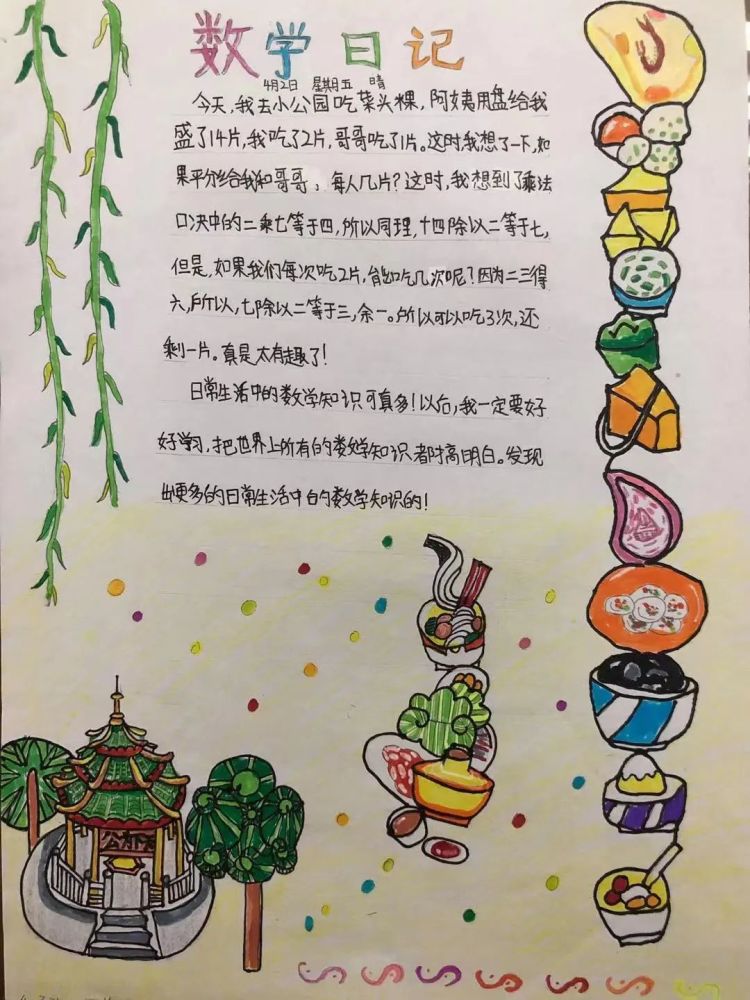 数学日记
4月2日 星期五 晴
今天,我去小公园吃菜头粿,阿姨用盘给我
盛了14片,我吃了2片,哥哥吃了1片。这时,我想了一下,如
果平分给我和哥哥,每人几片?这时,我想到了乘法
口决中的二乘七等于四,所以同理,十四除以二等于七,
但是,如果我们每次吃2片,能吃几次呢?因为二三得
六,所以,七除以二等于三,余一。所以可以吃3次,还
剩一片。真是太有趣了!
日常生活中的数学知识可真多!以后,我一定要好
好学习,把世界上所有的数学知识都搞明白。发现
出更多的日常生活中的数学知识的!